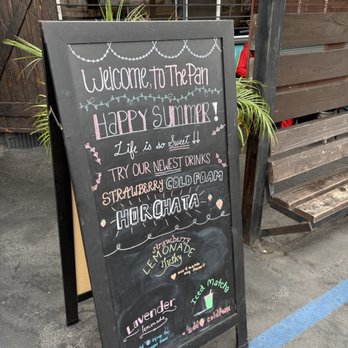 Welcome, to The Pan
Happy Summer!
Life is so Sweet!!
TRY OUR NEWEST DRINKS
STRAWBERRY COLD FOAM
HORCHATA
Strawberry
LEMONADE
Slushy
Iced Matcha
LAVENDER
lemonade